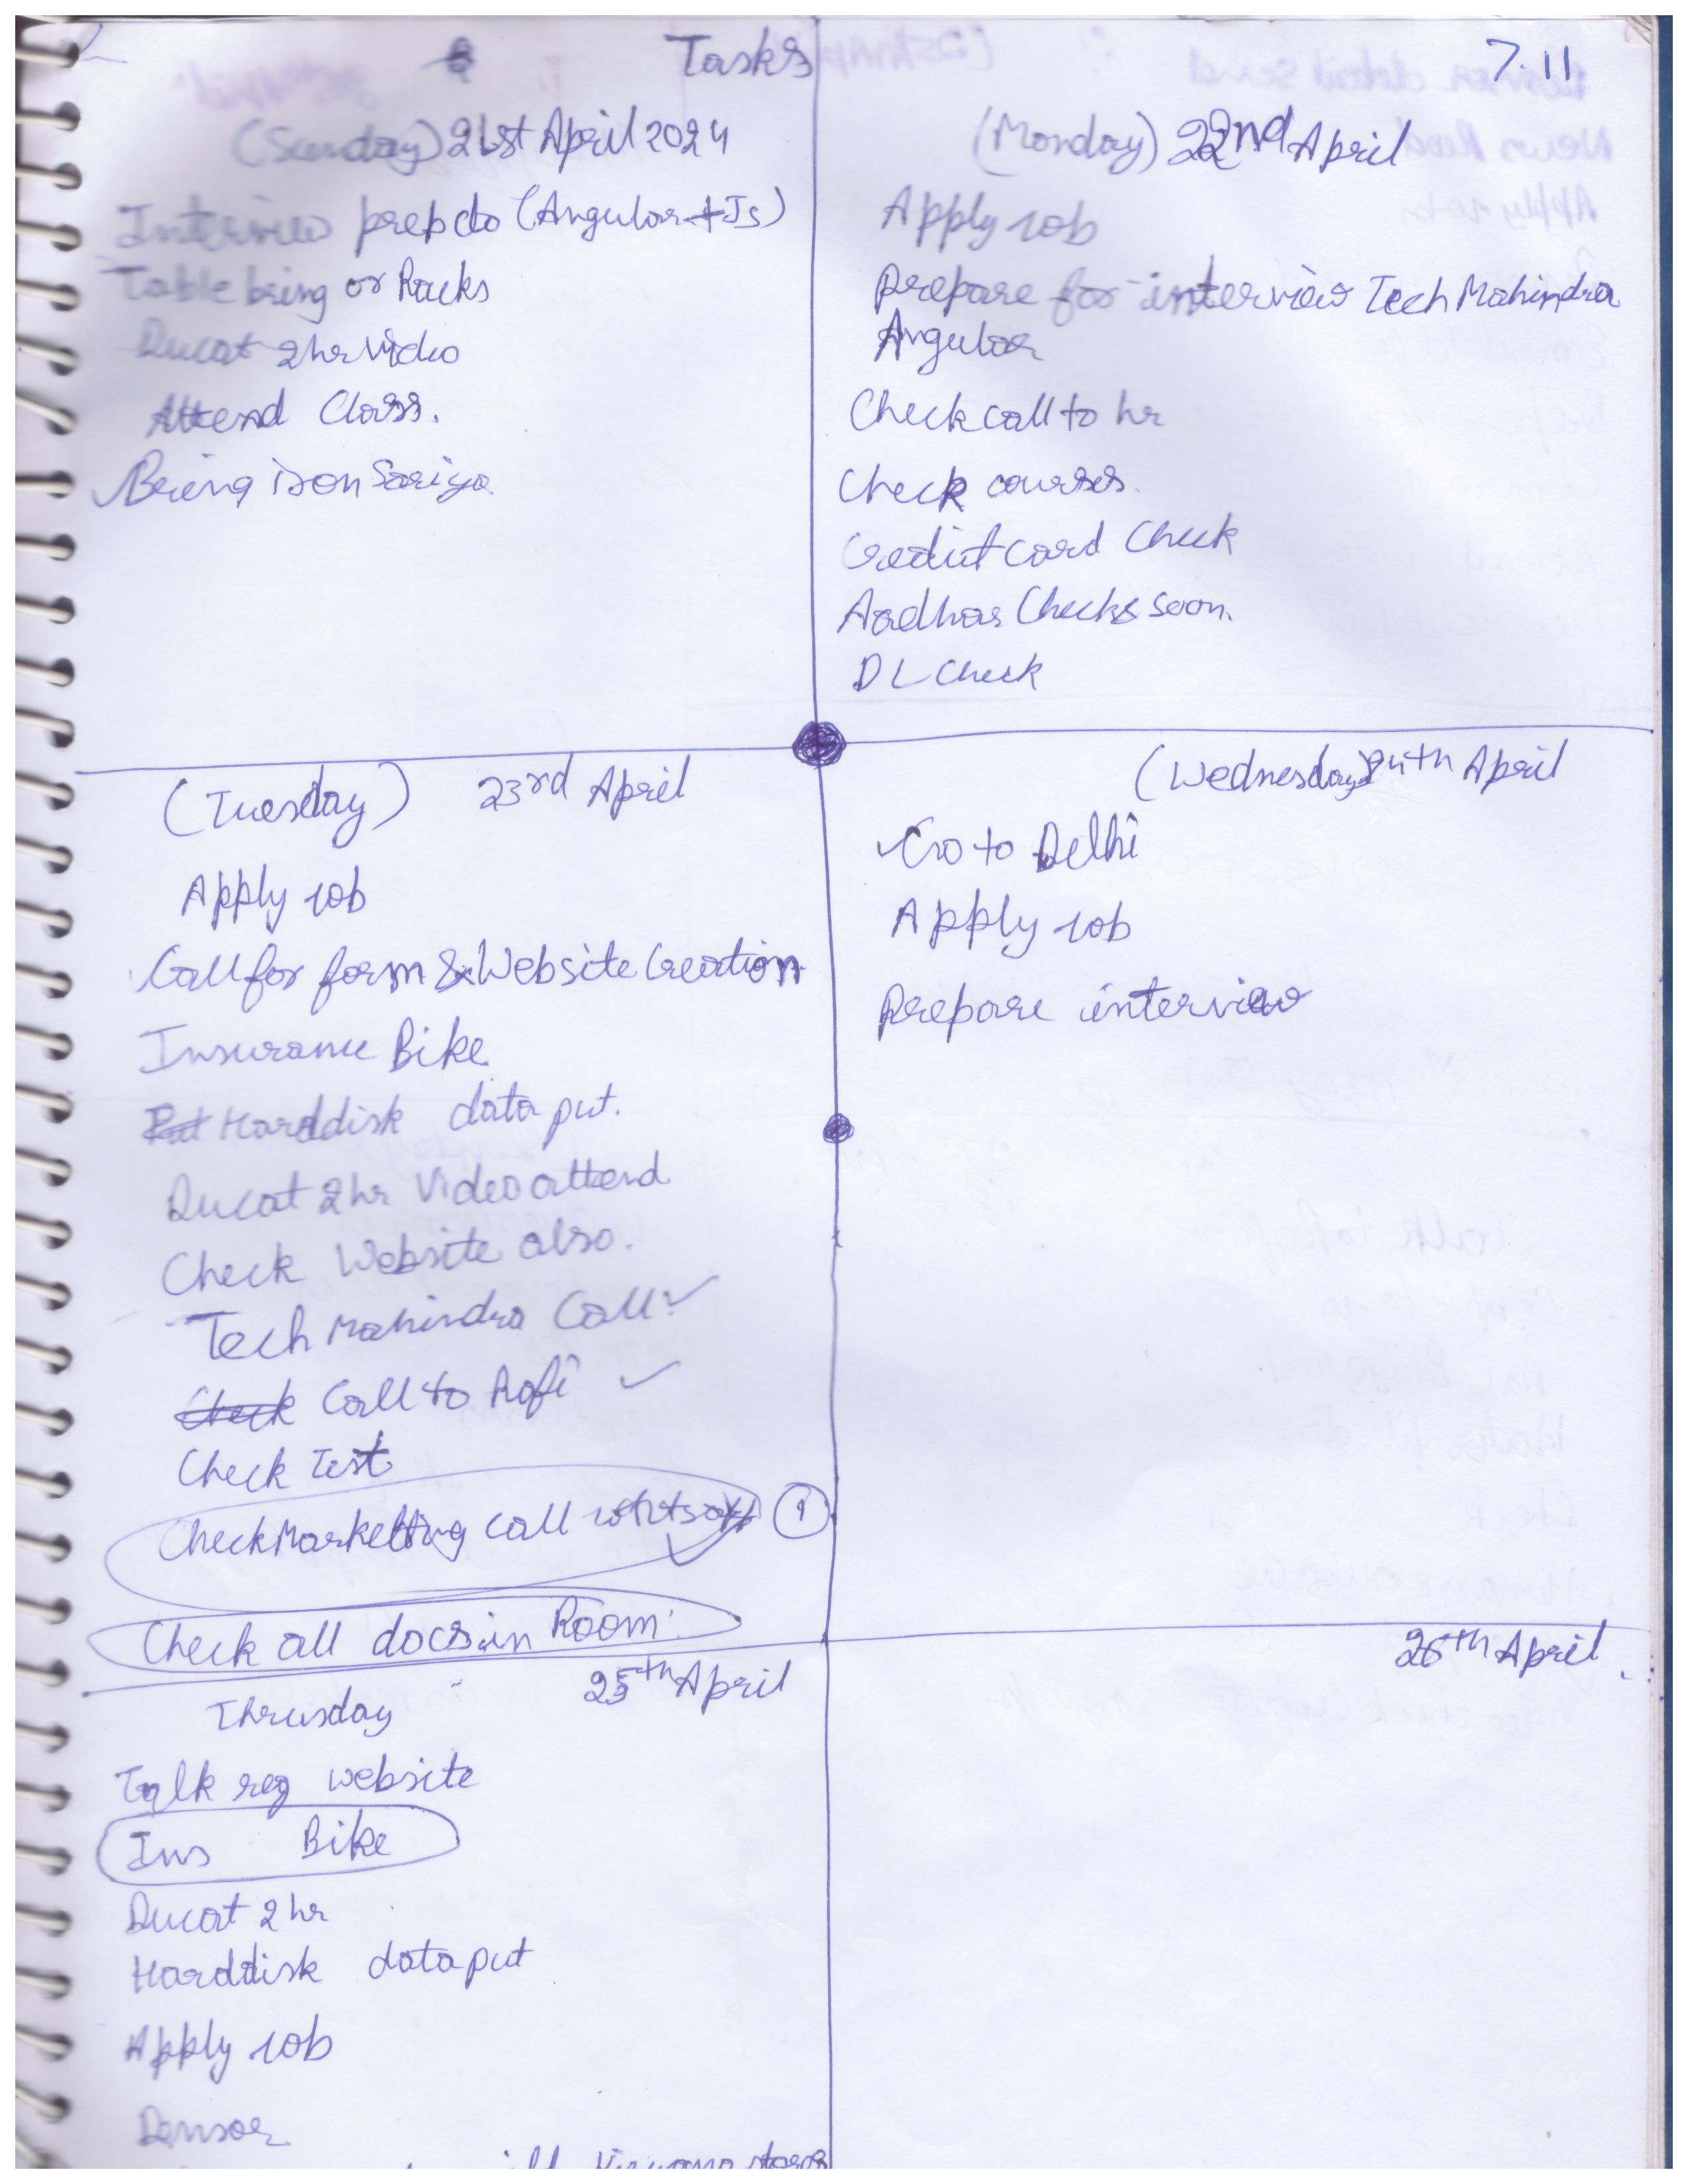 Tasks
7.11
(Sunday) 21st April 2024
Interview prep do (Angular + Js)
Table bring or Racks
Ducat 2hr Video
Attend Class.
Bring iron Sariya
(Monday) 22nd April
Apply job
Prepare for interview Tech Mahindra
Angular
Check call to hr
Check courses.
Credit card Check
Aadhar Checks soon.
DL Check
(Tuesday) 23rd April
Apply job
Call for form & Website Creation
Insurance Bike
Put Harddisk data put.
Ducat 2hr Video attend
Check Website also.
Tech Mahindra Call
Check Call to Rafi
Check Test
Check Marketting call whatsapp
Check all docs in Room.
(Wednesday) 24th April
Go to Delhi
Apply job
Prepare interview
25th April
Thrusday
Talk reg website
Ins Bike
Ducat 2hr
Harddisk data put
Apply job
26th April